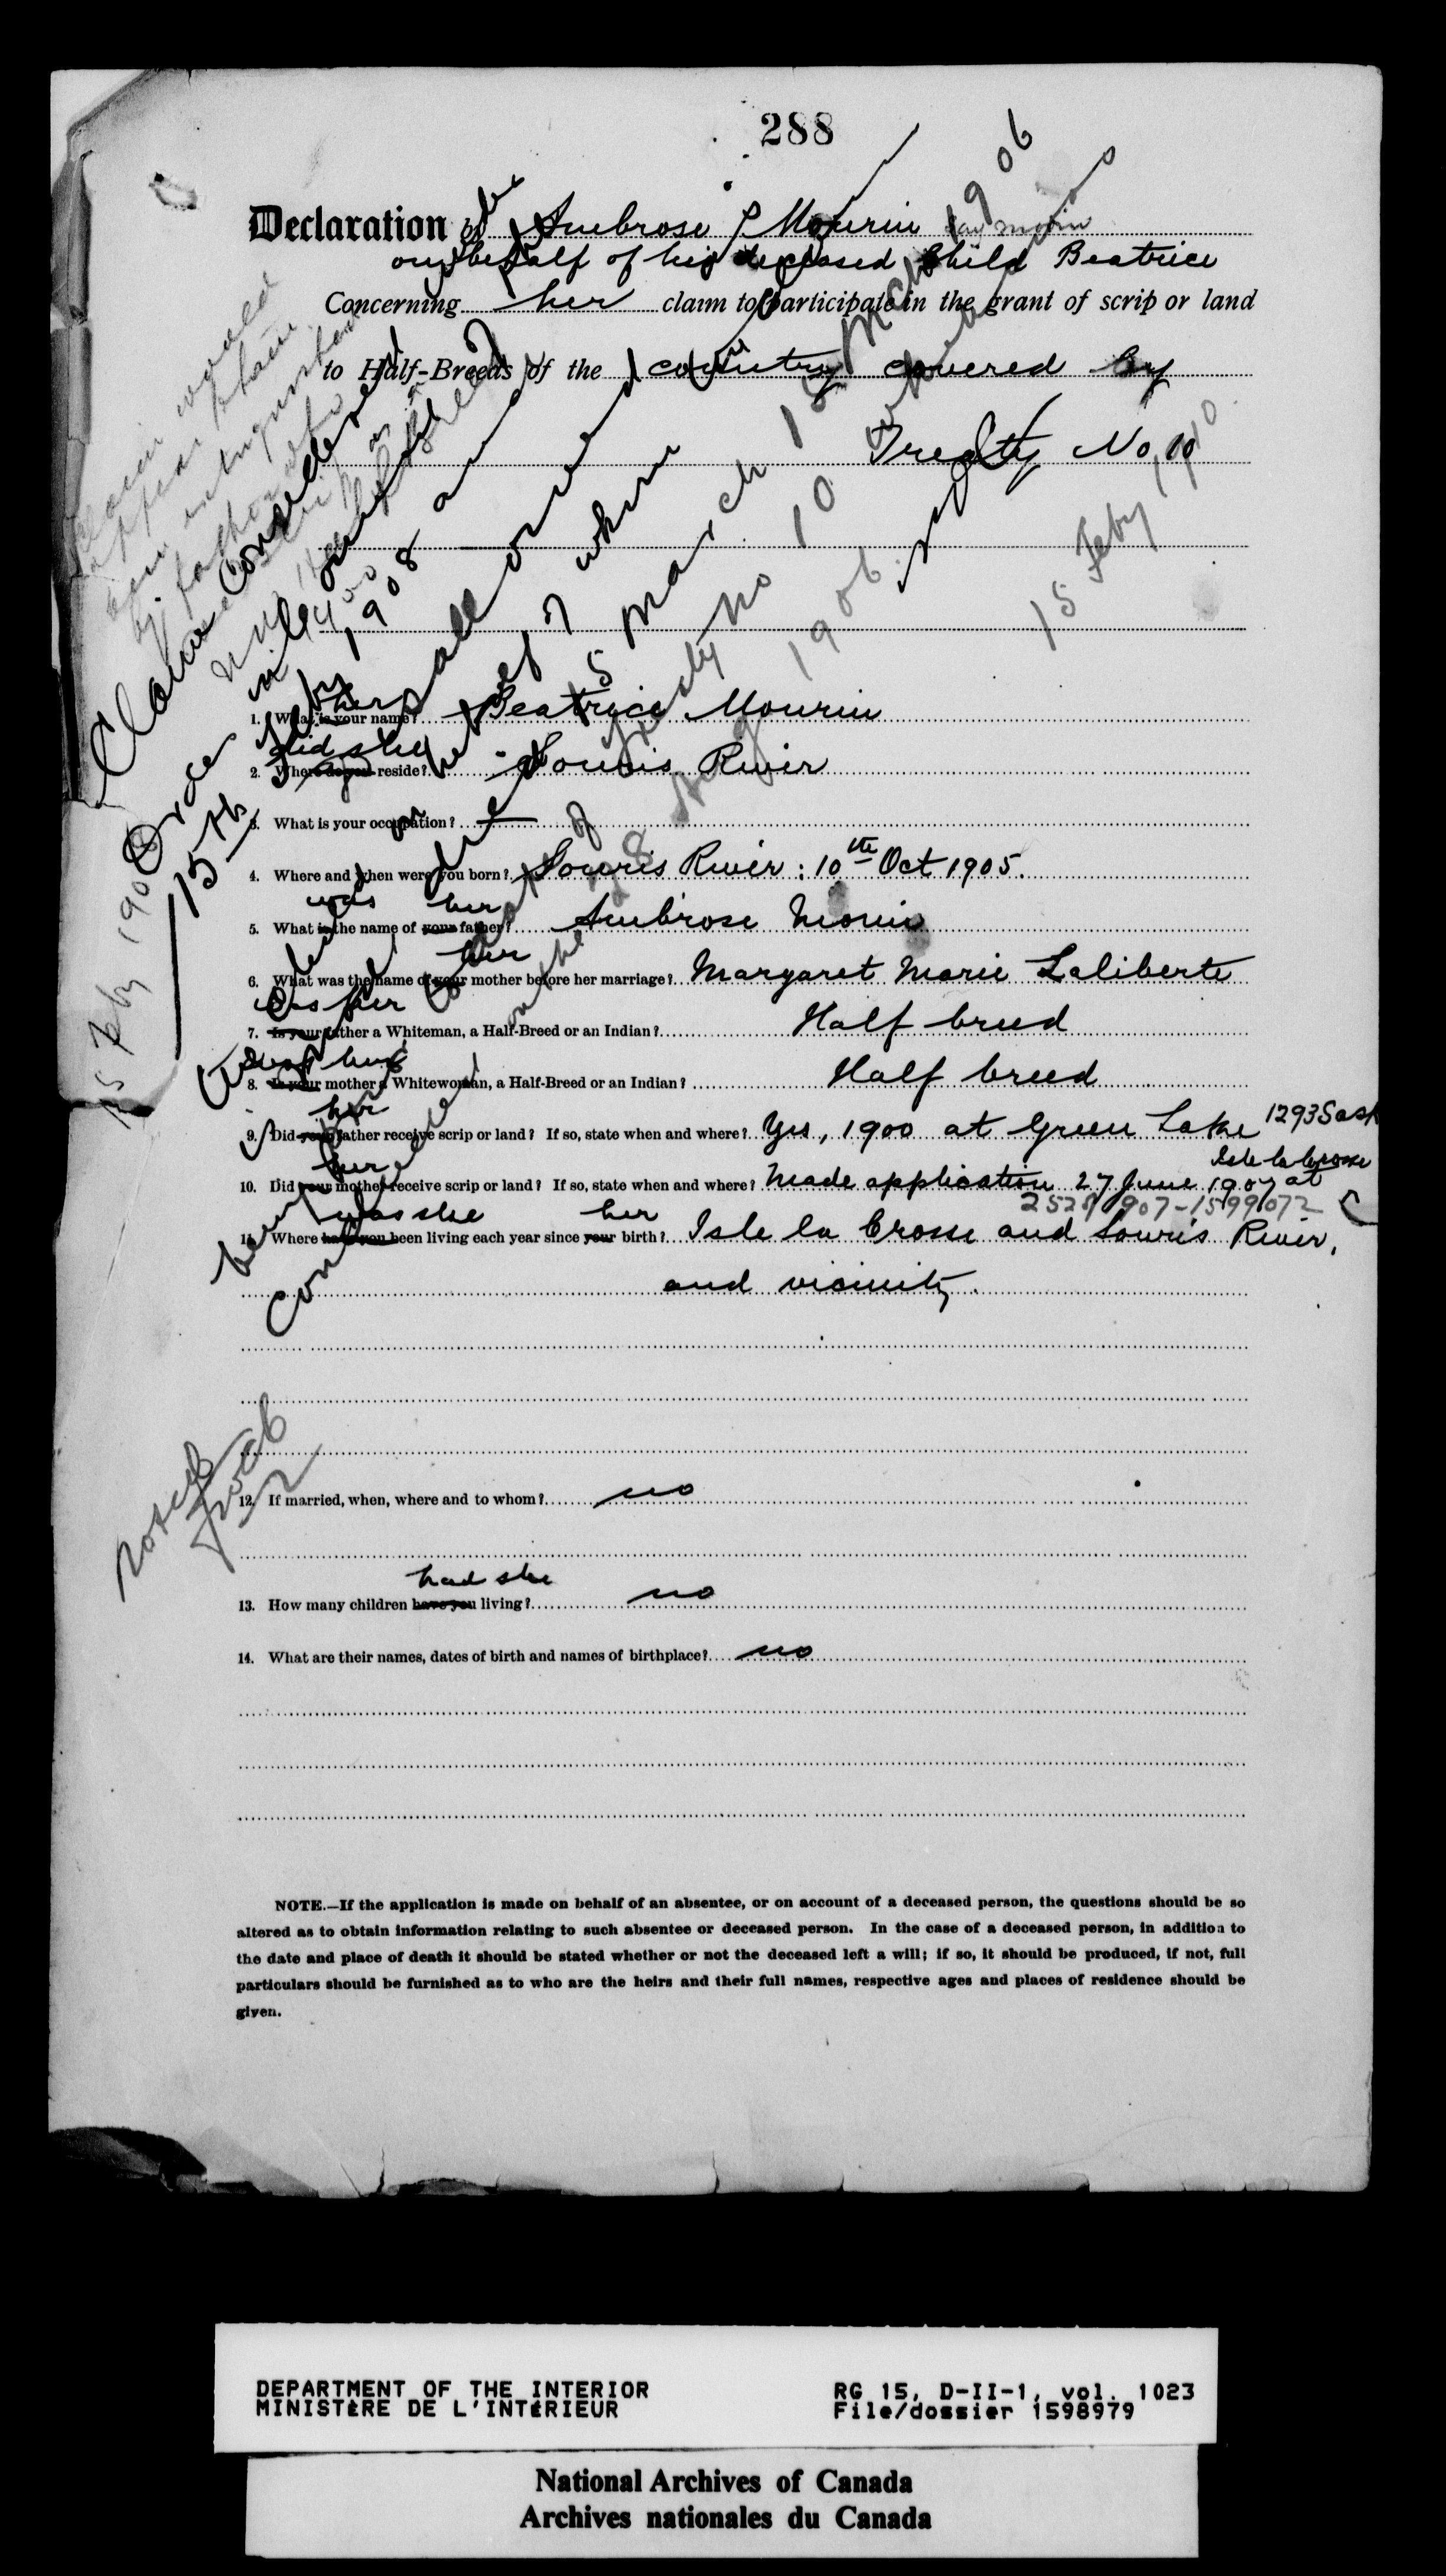 288
Declaration of Ambrose Mourin say morin
on behalf of his deceased Child Beatrice
Concerning her claim to participate in the grant of scrip or land
to Half-Breeds of the country covered by
Treaty No, 10
15 Feby 1910
Claim would
appear
Claim Considered
15th
1908
15 March
1906
her
1. What is your name? Beatrice Mourin
did she
2. Where do you reside? Souris River
3. What is your occupation? —
4. Where and when were you born? Souris River: 10th Oct 1905.
was her
5. What is the name of your father? Ambrose Morin
her
6. What was the name of your mother before her marriage? Margaret Marie Laliberte
Was her
7. Is your father a Whiteman, a Half-Breed or an Indian? Half breed
8. Is your mother a Whitewoman, a Half-Breed or an Indian? Half breed
her
9. Did your father receive scrip or land? If so, state when and where? Yes, 1900 at Green Lake 1293 Sask
her
Isle la Crosse
10. Did your mother receive scrip or land? If so, state when and where? Made application 27 June 1907 at
was she her
11. Where have you been living each year since your birth? Isle la Crosse and Souris River,
and vicinity.
12. If married, when, where and to whom? no
had she
13. How many children have you living? no
14. What are their names, dates of birth and names of birthplace? no
NOTE.—If the application is made on behalf of an absentee, or on account of a deceased person, the questions should be so
altered as to obtain information relating to such absentee or deceased person. In the case of a deceased person, in addition to
the date and place of death it should be stated whether or not the deceased left a will; if so, it should be produced, if not, full
particulars should be furnished as to who are the heirs and their full names, respective ages and places of residence should be
given.
DEPARTMENT OF THE INTERIOR
MINISTÈRE DE L'INTÉRIEUR
RG 15, D-II-1, vol. 1023
File/dossier 1598979
National Archives of Canada
Archives nationales du Canada